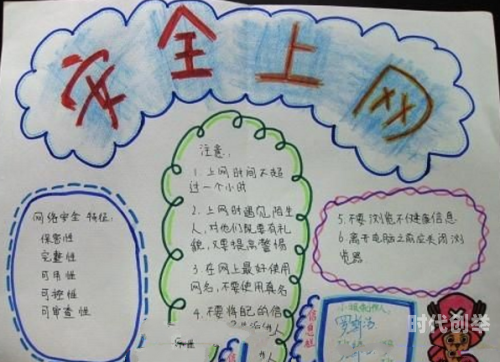 安全上网
网络安全 特征:
保密性
完整性
可用性
可控性
可审查性
注意:
1. 上网时间不超
过一个小时
2. 上网时遇见陌生
人,对他们既要有礼
貌,又要提高警惕
3. 在网上最好使用
网名,不要使用真名
4. 不要将自己的信
5. 不要浏览不健康信息
6. 离开电脑之前应关闭浏
览器
信息组
时代创举